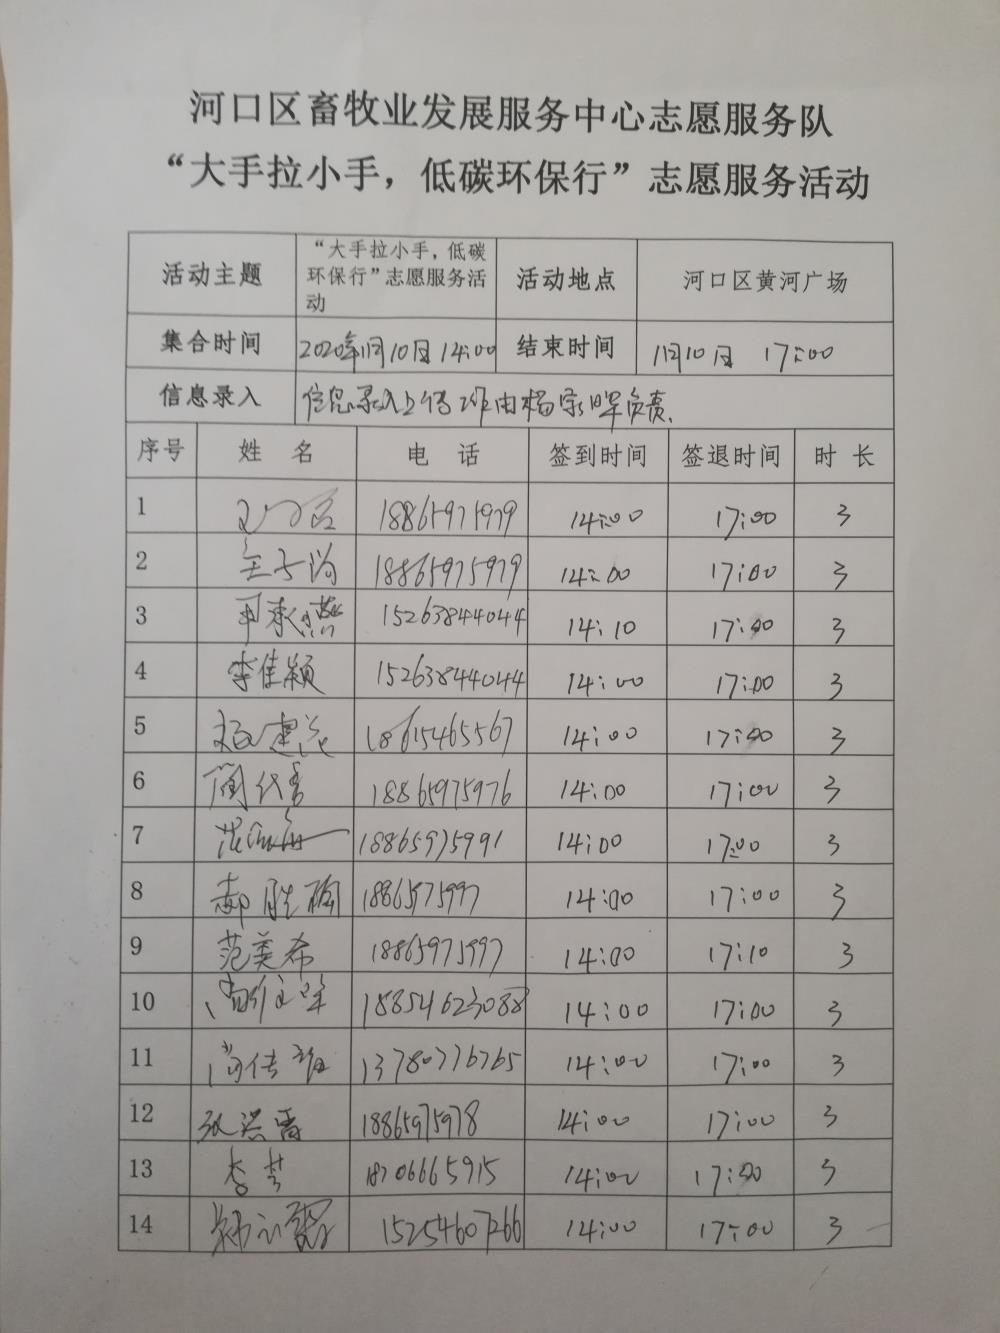 河口区畜牧业发展服务中心志愿服务队
“大手拉小手，低碳环保行”志愿服务活动
活动主题
“大手拉小手，低碳
环保行”志愿服务活
动
活动地点
河口区黄河广场
集合时间
2020年11月10日 14:00
结束时间
11月10日 17:00
信息录入
信息录入上传 由杨 负责
序号 姓 名 电 话 签到时间 签退时间 时 长
1 18865975979 14:00 17:00 3
2 18865975979 14:00 17:00 3
3 15263844044 14:10 17:00 3
4 李佳颖 15263844044 14:00 17:00 3
5 18615465567 14:00 17:00 3
6 18865975976 14:00 17:00 3
7 18865975991 14:00 17:00 3
8 郝胜楠 14:00 17:00 3
9 范美希 18865975997 14:00 17:10 3
10 14:00 17:00 3
11 尚传 13780776765 14:00 17:00 3
12 18865975978 14:00 17:00 3
13 李 18706665915 14:00 17:00 3
14 15254607266 14:00 17:00 3